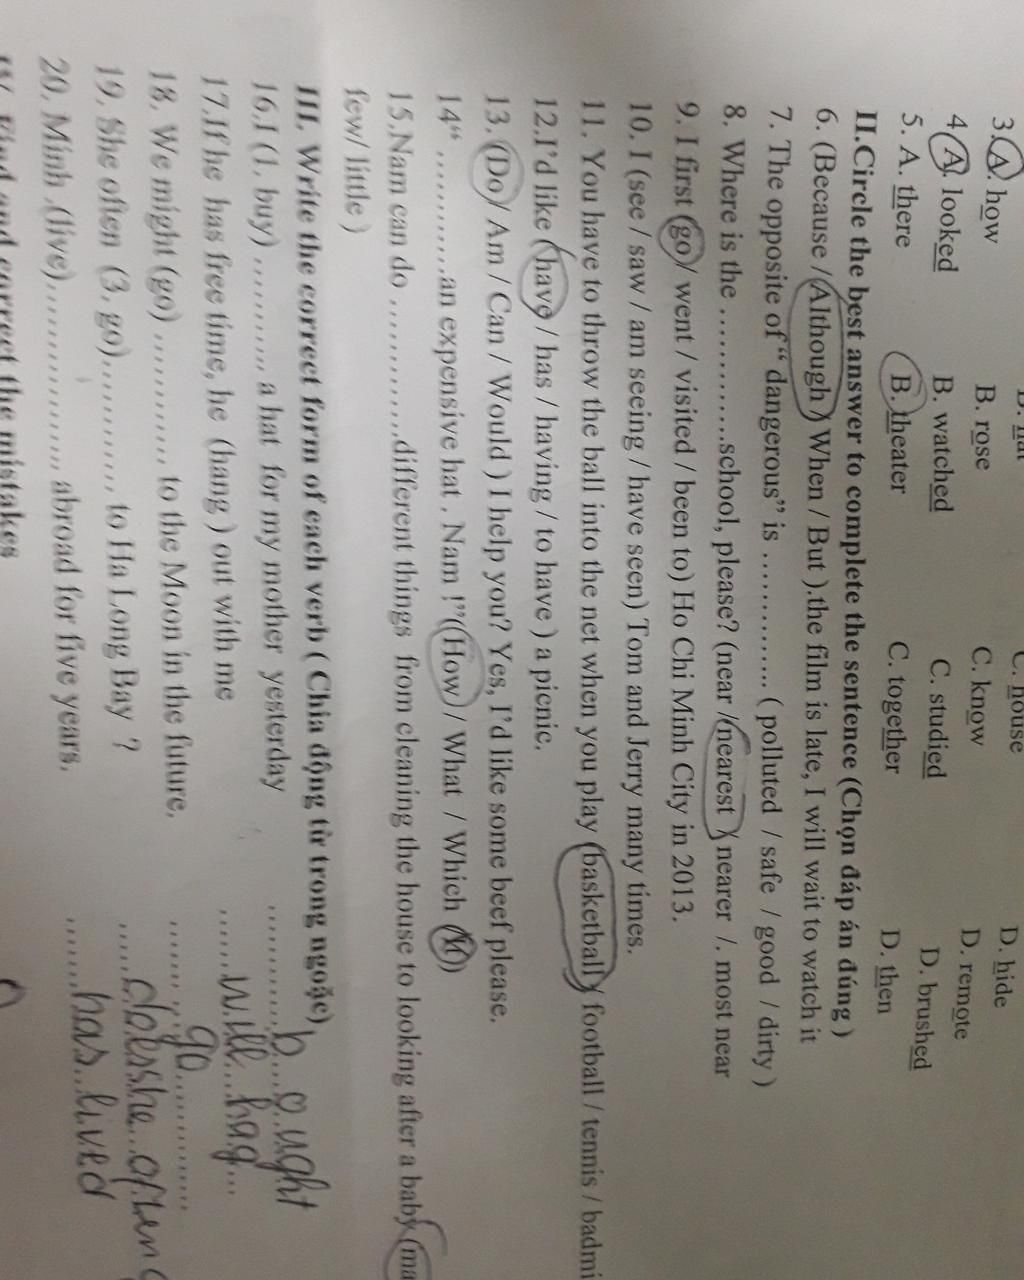 C. house D. hide
3. A. how B. rose C. know D. remote
4 A. looked B. watched C. studied D. brushed
5. A. there B. theater C. together D. then
II.Circle the best answer to complete the sentence (Chọn đáp án đúng )
6. (Because / Although / When / But ).the film is late, I will wait to watch it
7. The opposite of “ dangerous” is ………… ( polluted / safe / good / dirty )
8. Where is the …………school, please? (near / nearest / nearer /. most near
9. I first (go / went / visited / been to) Ho Chi Minh City in 2013.
10. I (see / saw / am seeing / have seen) Tom and Jerry many times.
11. You have to throw the ball into the net when you play (basketball / football / tennis / badmi
12.I’d like (have / has / having / to have ) a picnic.
13. (Do / Am / Can / Would ) I help you? Yes, I’d like some beef please.
14“ …………an expensive hat . Nam !”(How / What / Which )
15.Nam can do …………different things from cleaning the house to looking after a baby (ma
few/ little )
III. Write the correct form of each verb ( Chia động từ trong ngoặc)
16.I (1. buy) ………… a hat for my mother yesterday ………b…ought
17.If he has free time, he (hang ) out with me ……will…hag…
18. We might (go) ………… to the Moon in the future. ………go…………
19. She often (3. go)………… to Ha Long Bay ? ……does she often
20. Minh .(live)………… abroad for five years. ……has lived
correct the mistakes